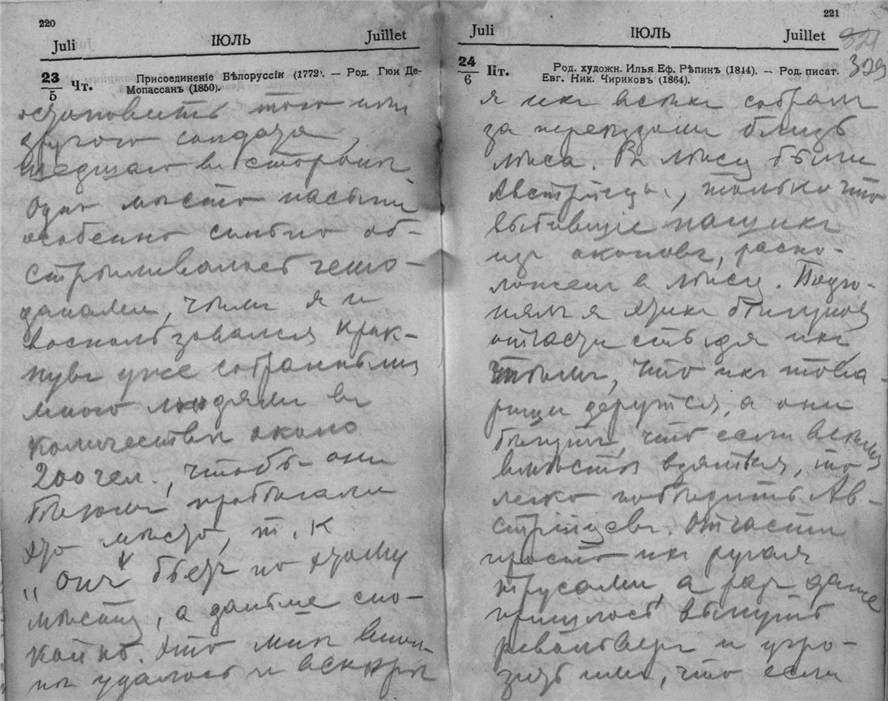 220
Juli ІЮЛЬ Juillet
23/5 Чт. Присоединеніе Бѣлоруссіи (1772). — Род. Гюи Де-
Мопассанъ (1850).
остановить того или
другого солдата,
шедшаго въ стороны.
Одно мѣсто насыпи
особенно сильно об-
стрѣливалось чемо-
данами, чѣмъ я и
воспользовался крик-
нувъ уже собраннымъ
мною людямъ въ
количествѣ около
200 чел., чтобы они
бѣгомъ пробѣгали
это мѣсто, т. к
"онъ" бьетъ по этому
мѣсту, а дальше спо-
койно. Это мнѣ впол-
нѣ удалось и вскорѣ
221
Juli ІЮЛЬ Juillet
329
24/6 Пт. Род. художн. Илья Еф. Рѣпинъ (1844). — Род. писат.
Евг. Ник. Чириковъ (1864).
я ихъ всѣхъ собралъ
за переѣздомъ близъ
лѣса. Въ лѣсу были
Австрійцы, только что
выбившіе нашихъ
изъ окоповъ, распо-
ложен. въ лѣсу. Подго-
нялъ я этихъ бѣгуновъ
отчасти стыдя ихъ
тѣмъ, что ихъ това-
рищи дерутся, а они
бѣгутъ, что если всѣмъ
вмѣстѣ взяться, то
легко побѣдить Ав-
стрійцевъ. Отчасти
просто ихъ ругалъ
трусами, а разъ даже
пришлось вынуть
револьверъ и угро-
зить имъ, что если